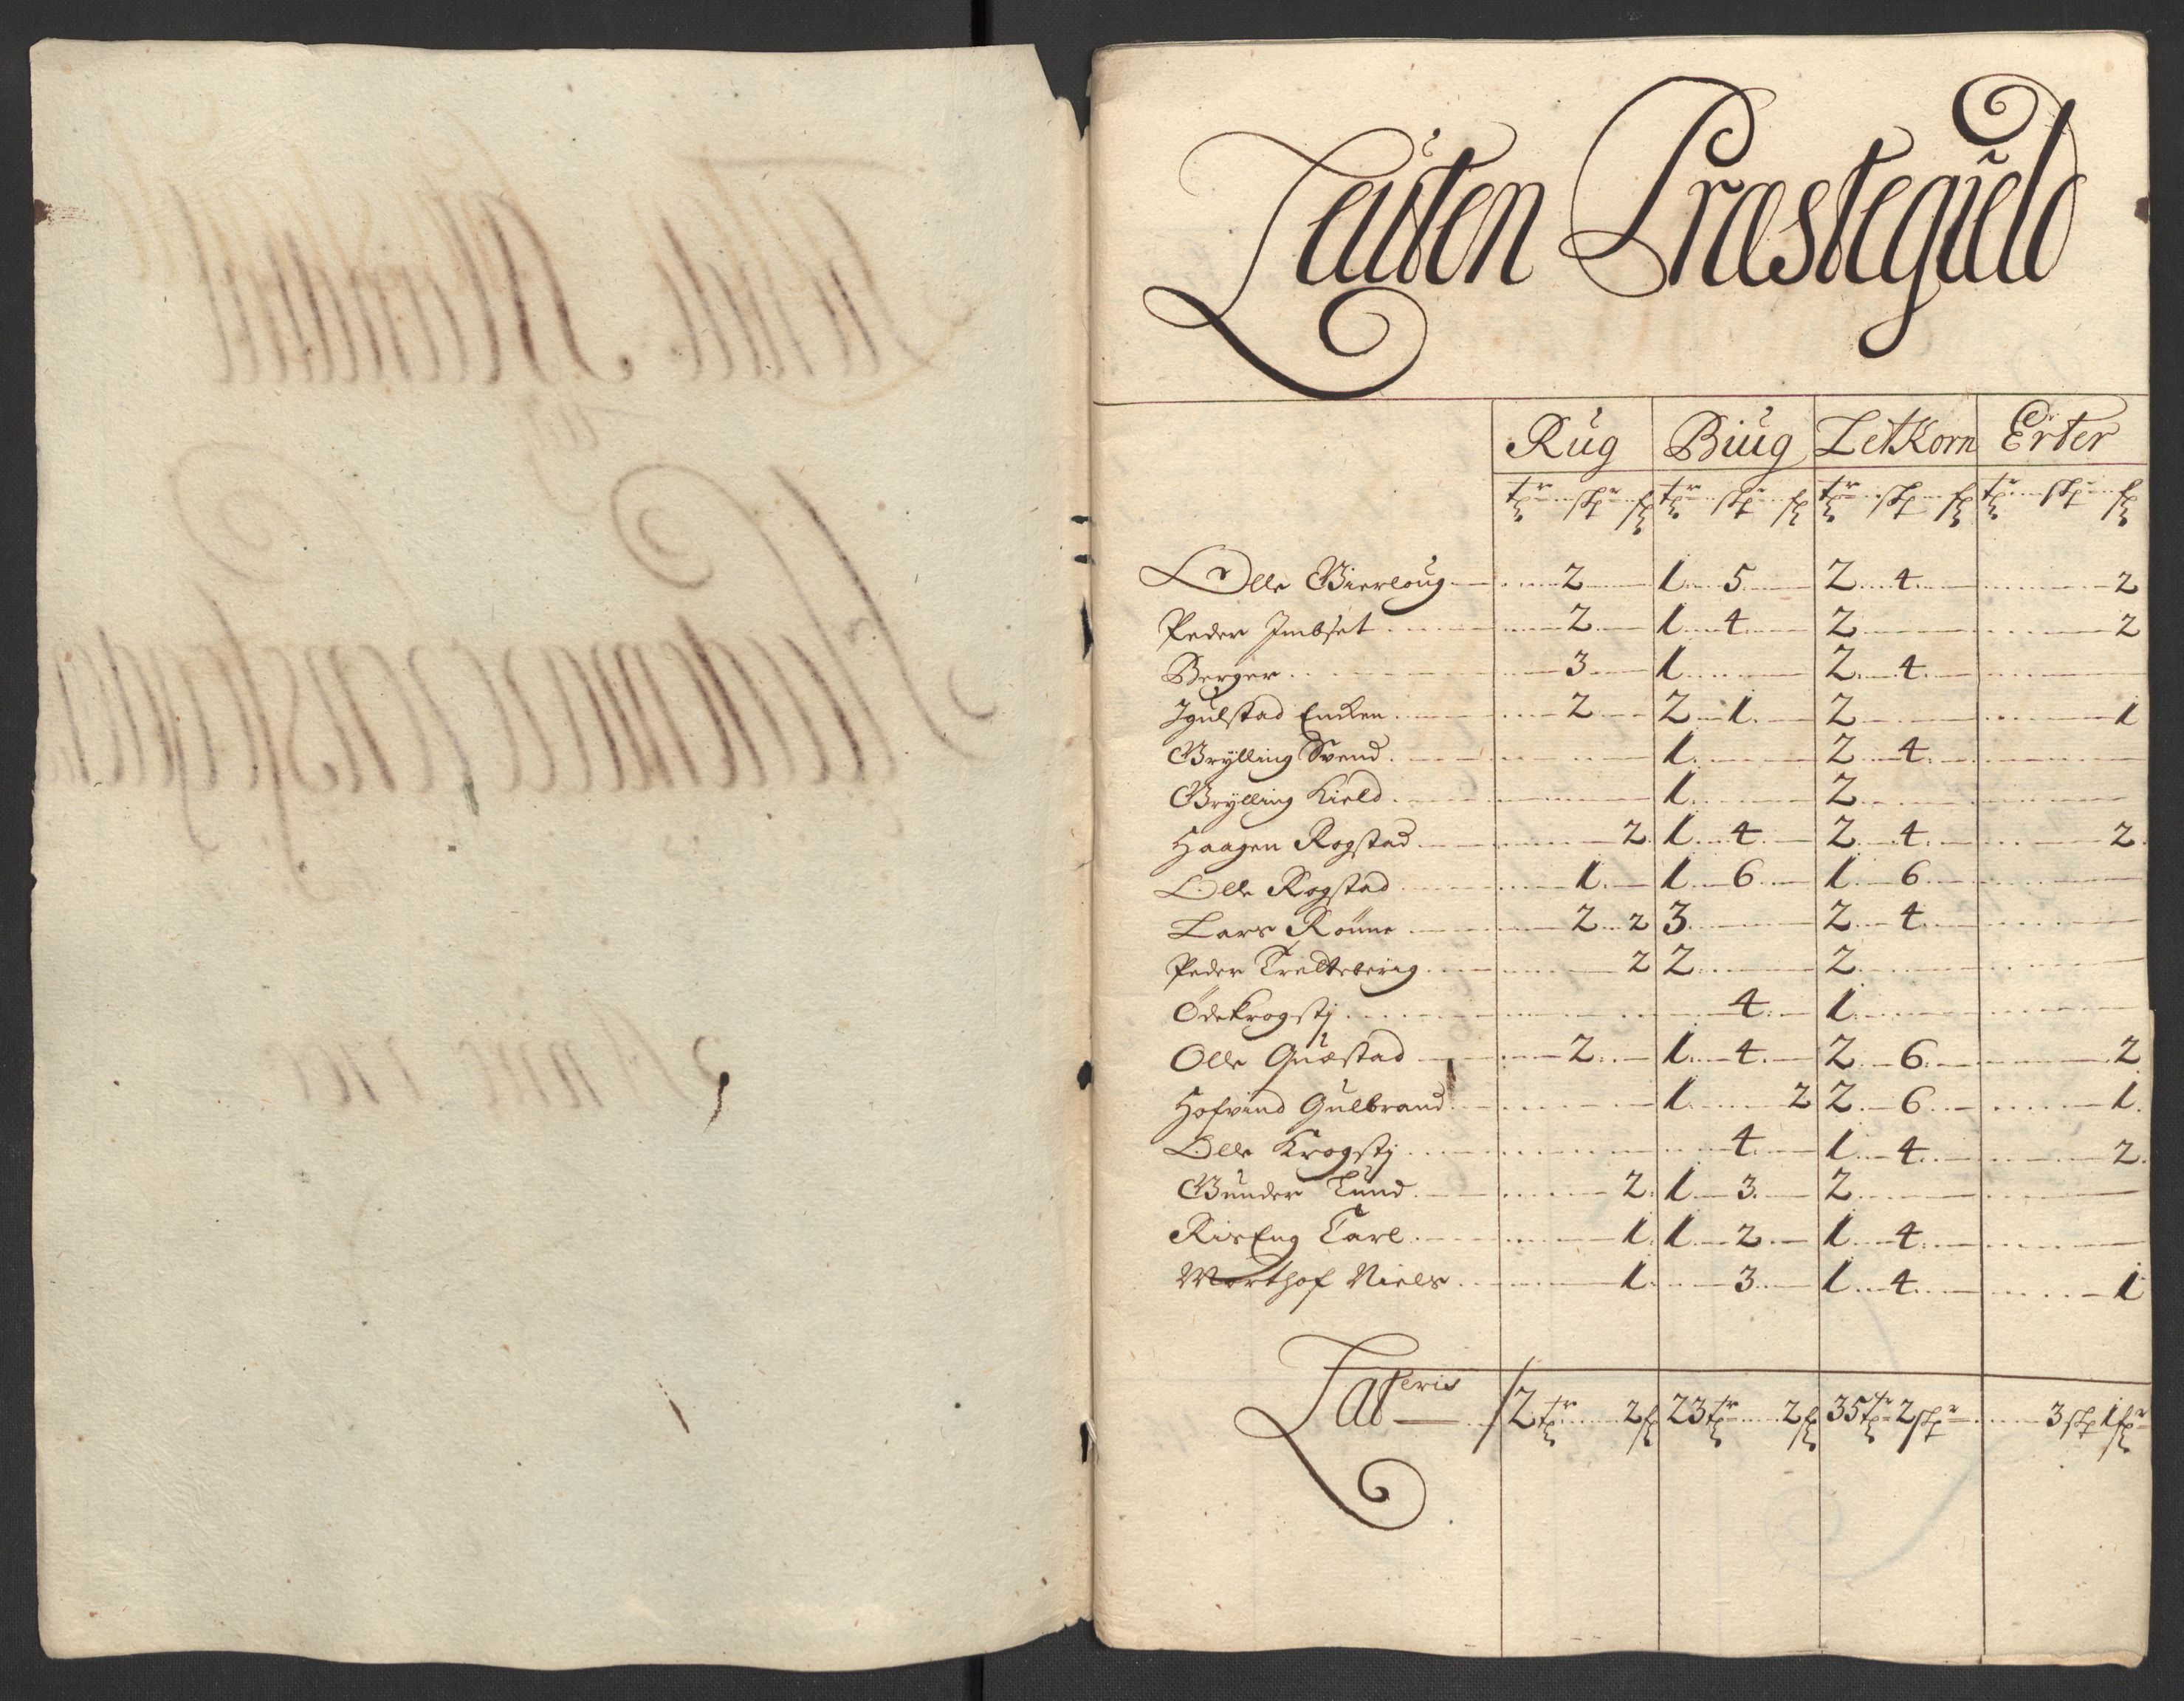 Leuten Præstegield
Rug Biug LetKorn Erter
tr skpr fr tr skpr fr tr skp fr tr skpr fr
Olle Bierloug 2 1 5 2 4 2
Peder Imbset 2 1 4 2 2
Berger 3 1 2 4
Igulstad Encken 2 2 1 2 1
Grylling Svend 1 2 4
Grylling Kield 1 2
Haagen Rogstad 2 1 4 2 4 2
Olle Rogstad 1 1 6 1 6
Lars Rönne 2 2 3 2 4
Peder Treltebierg 2 2 2
Ödekrogstj 4 1
Olle Quæstad 2 1 4 2 6 2
Hofvind Gulbrand 1 2 2 6 1
Olle Krogstj 4 1 4 2
Gunder Lund 2 1 3 2
RisEng Carl 1 1 2 1 4
Morthof Niels 1 3 1 4 1
Lateris 2 tr 2 f 23 tr 2 f 35 tr 2 skpr 3 skp 1 fr